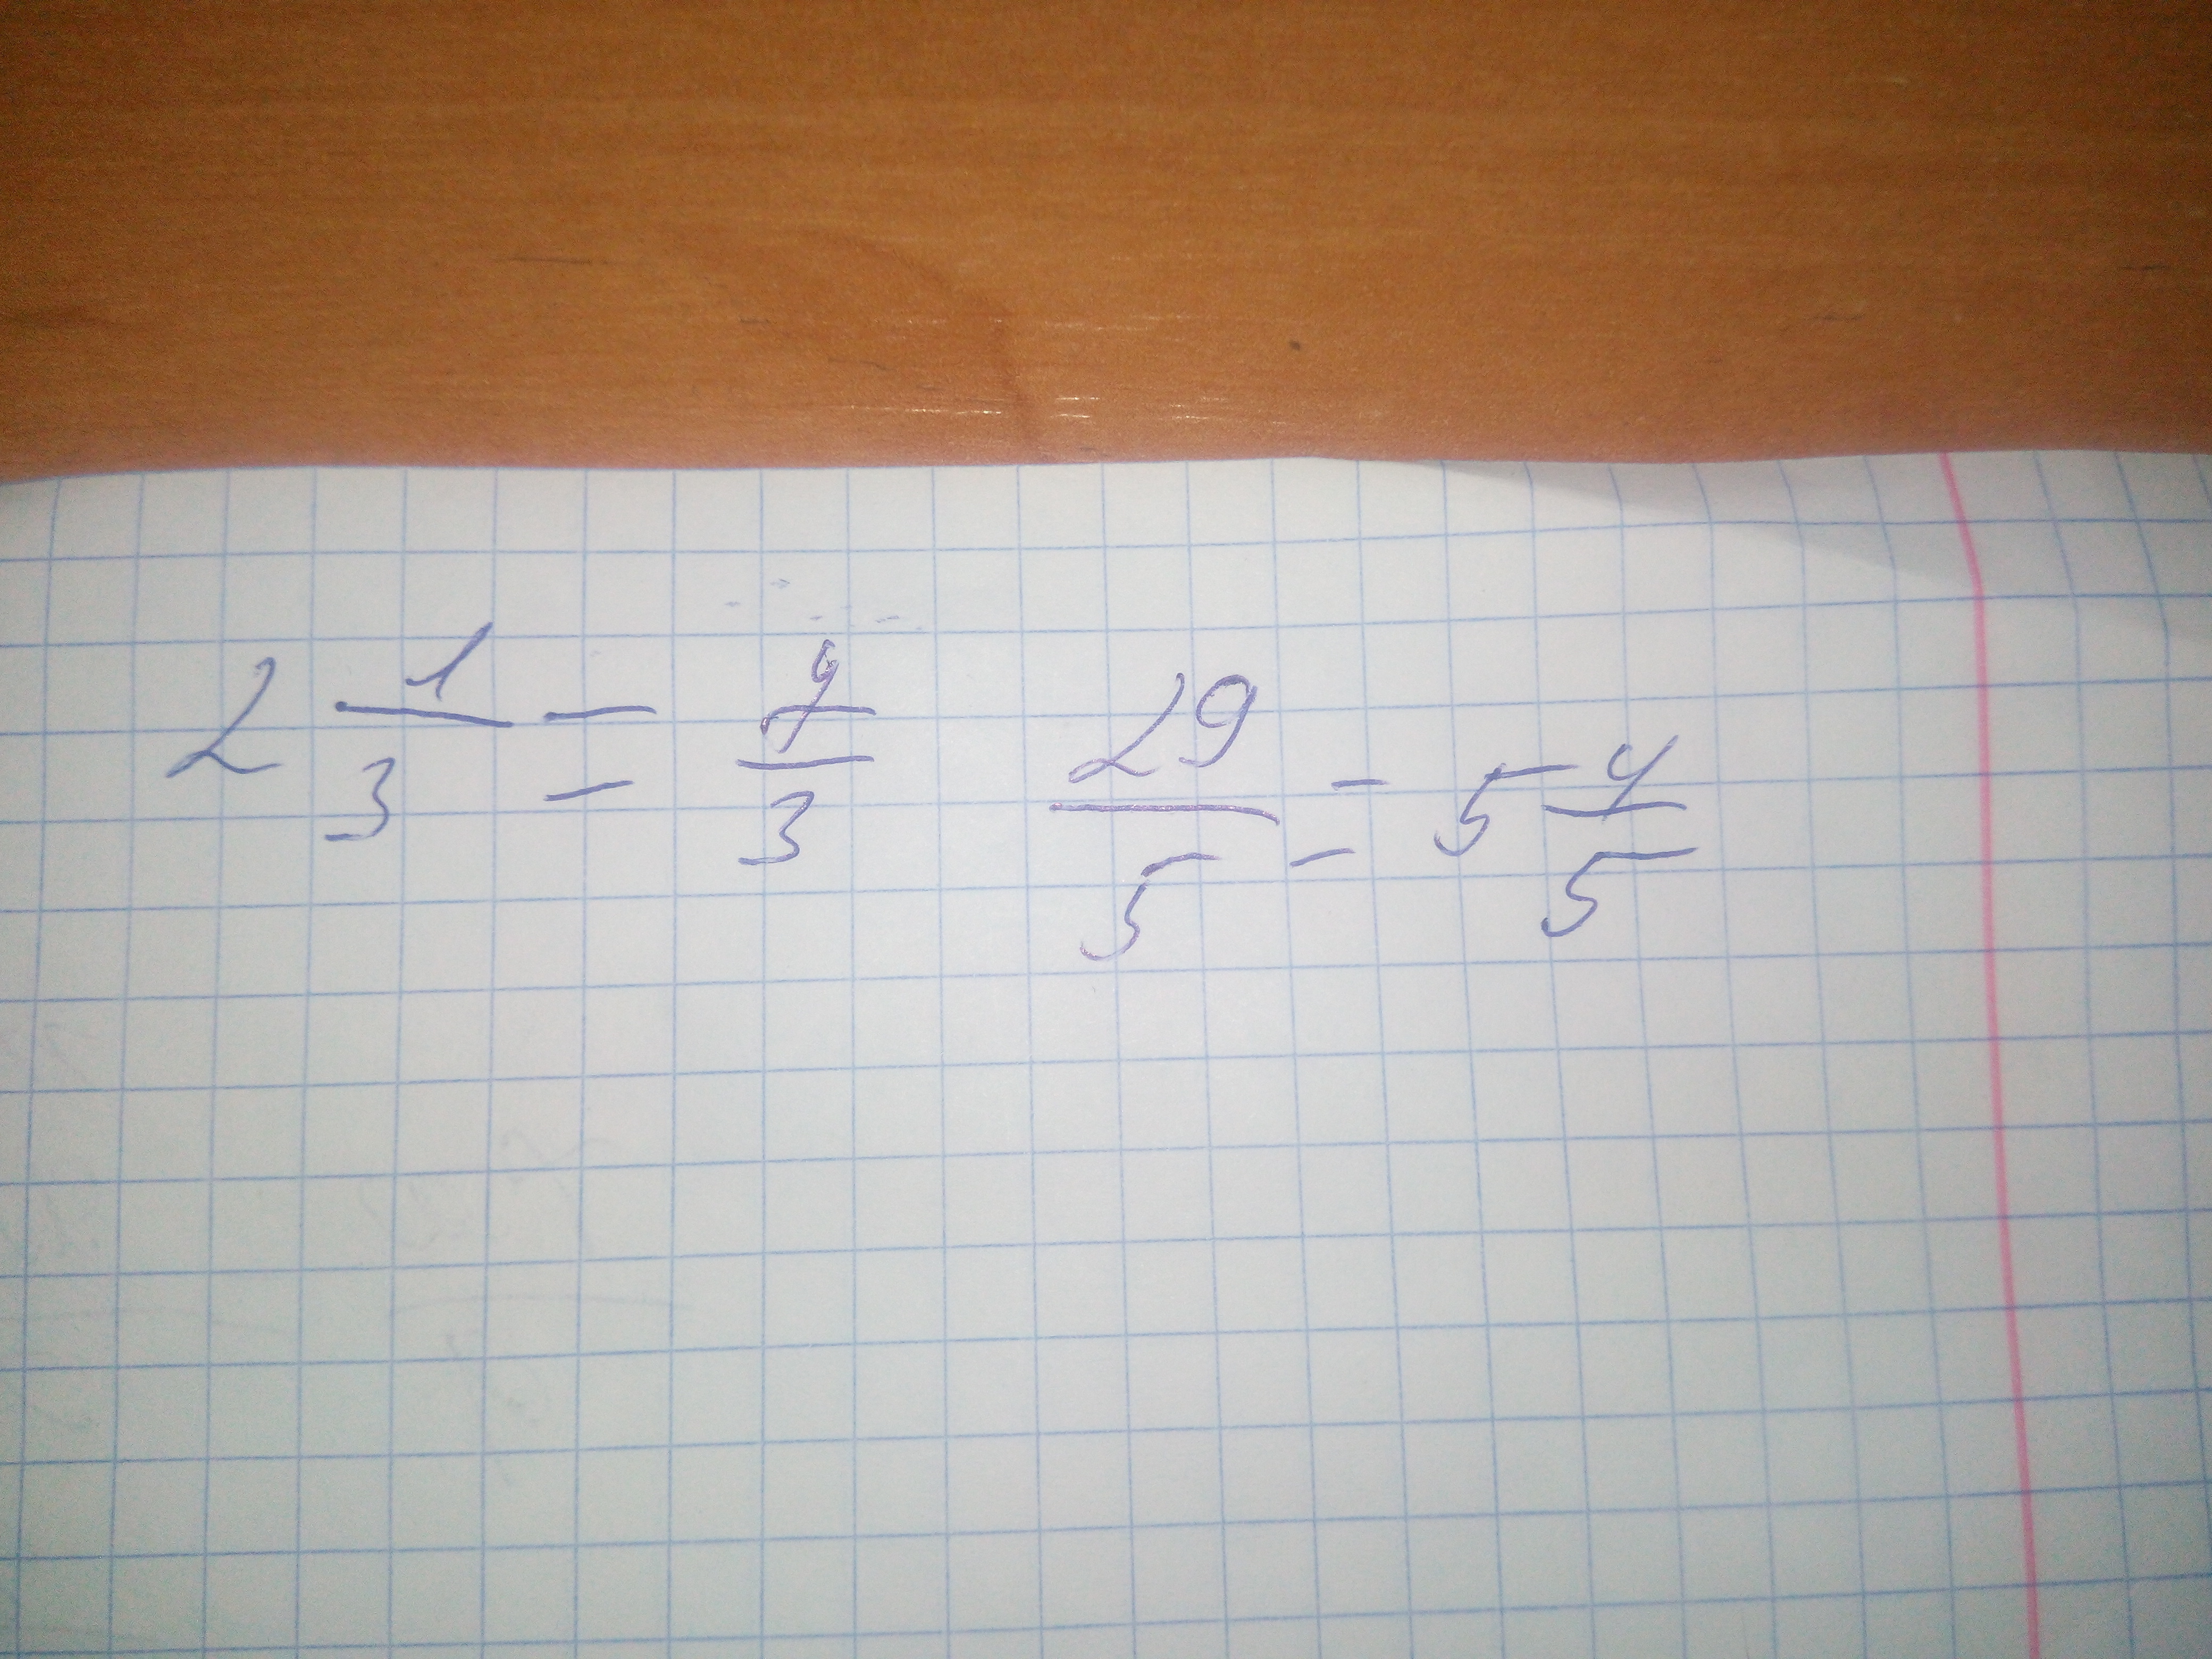 2 1/3 = 7/3 29/5 = 5 4/5